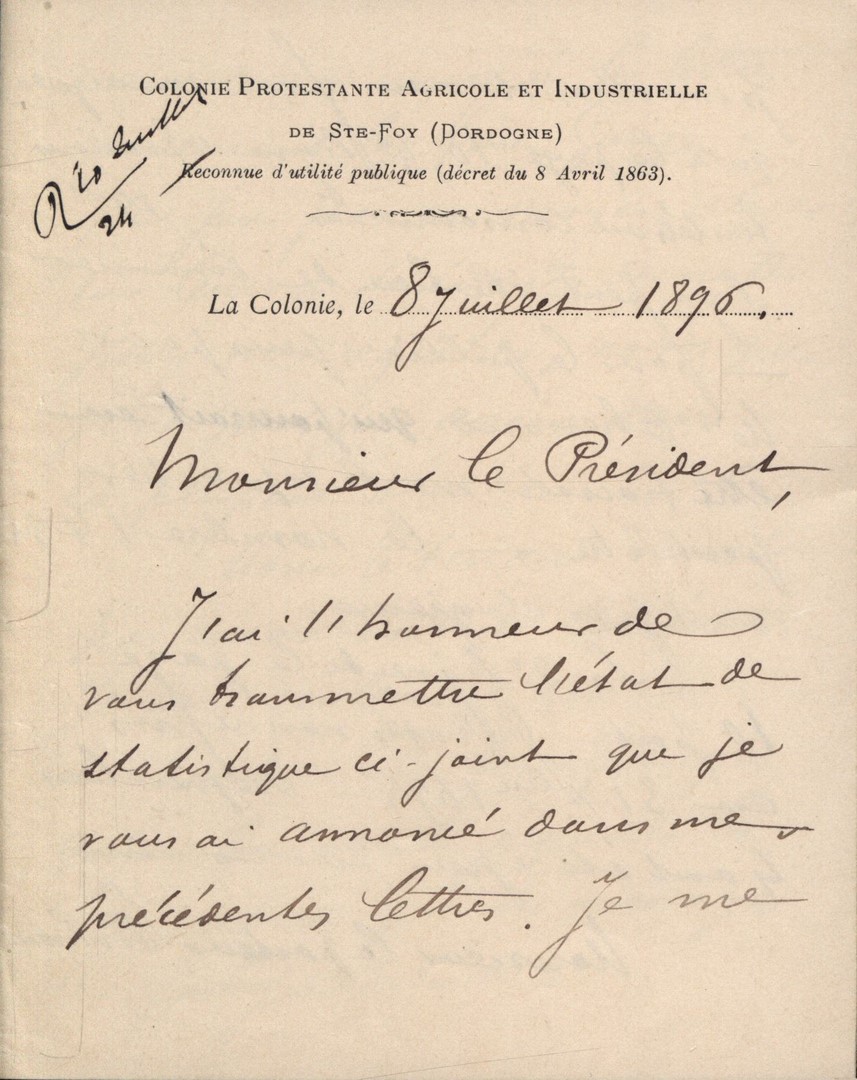 COLONIE PROTESTANTE AGRICOLE ET INDUSTRIELLE
DE STE-FOY (DORDOGNE)
Reconnue d'utilité publique (décret du 8 Avril 1863).
R 10 Juillet
24
La Colonie, le 8 Juillet 1896.
Monsieur le Président,
J'ai l'honneur de
vous transmettre l'état de
statistique ci-joint que je
vous ai annoncé dans mes
précédentes lettres. Je me